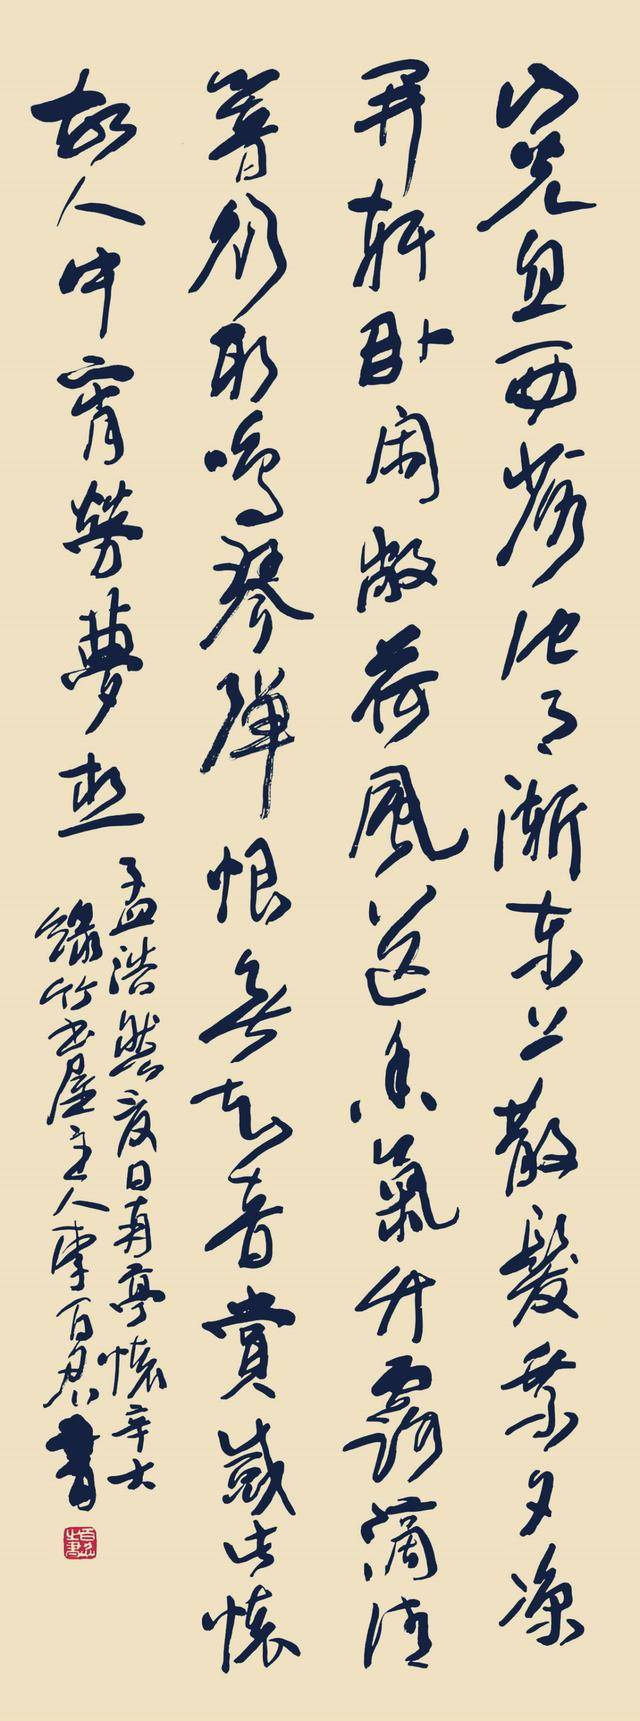 山光忽西落池月漸東上散髮乘夕涼
开軒卧闲敞荷風送香氣竹露滴清
響欲取鳴琴彈恨無知音賞感此懷
故人中宵勞夢想
孟浩然夏日南亭懷辛大
綠竹书屋主人李百君書